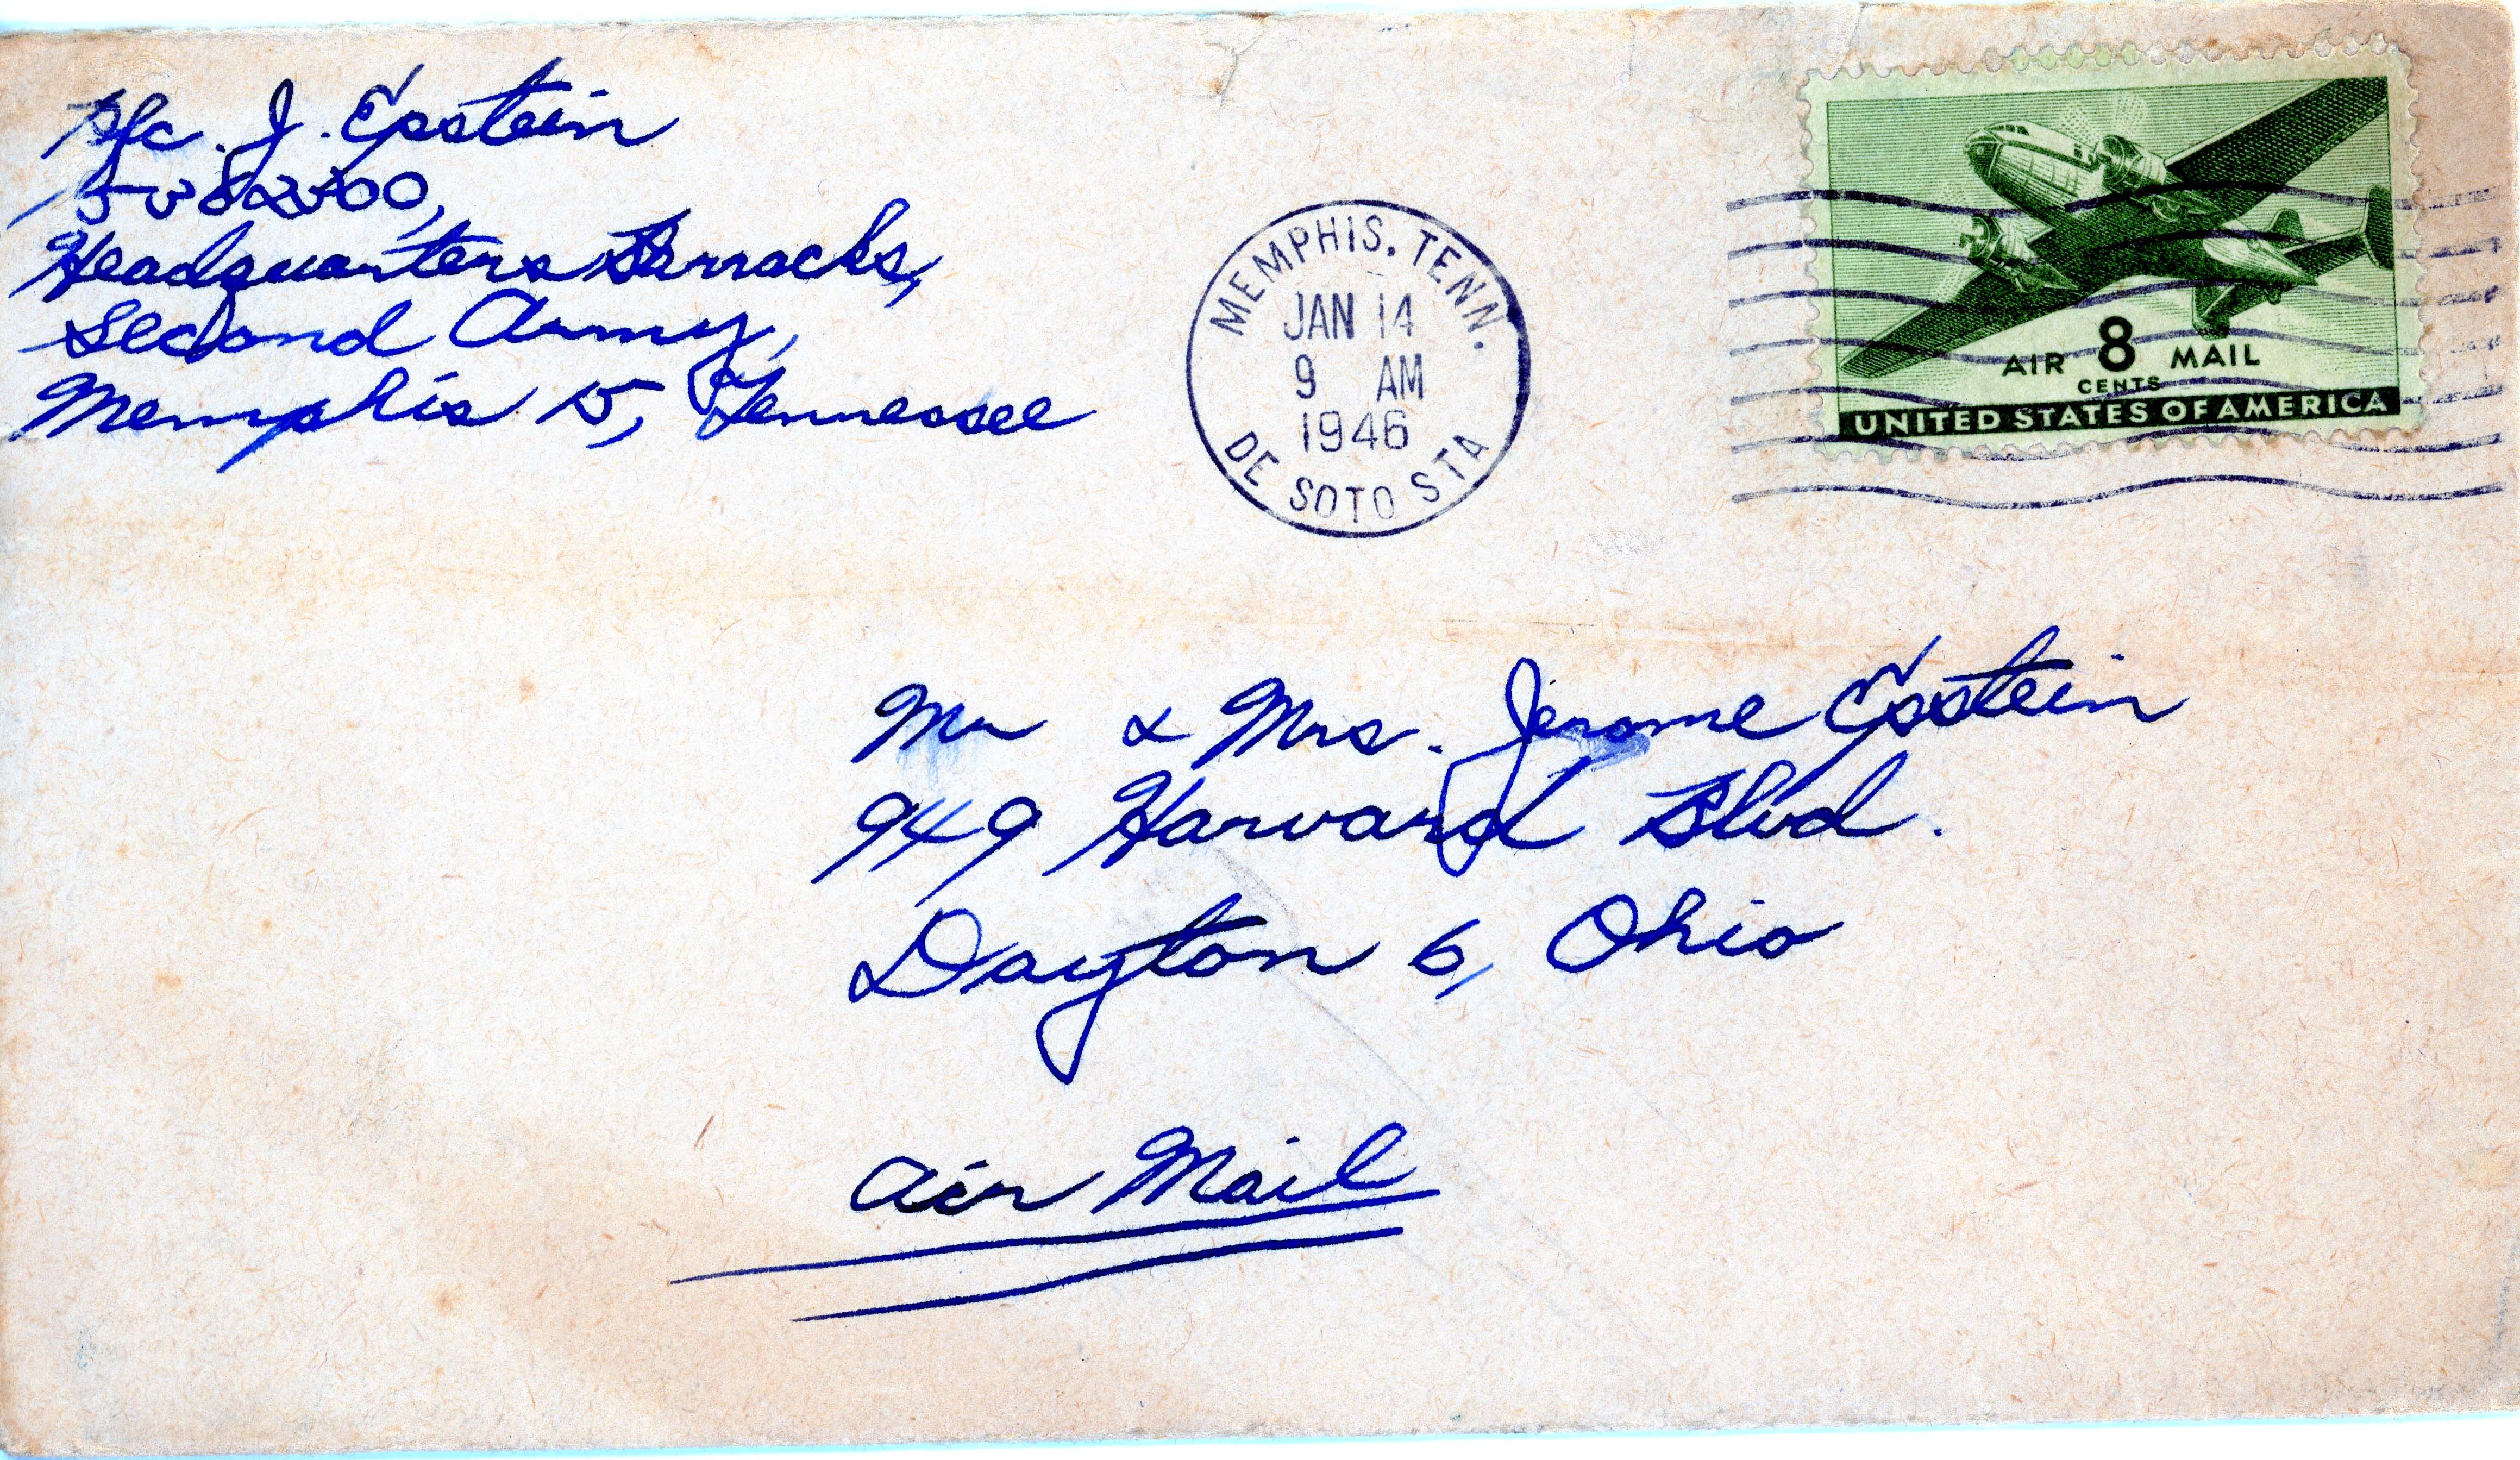 Pfc. J. Epstein
Headquarters Barracks,
Second Army,
Memphis 15, Tennessee
MEMPHIS, TENN.
JAN 14
9 AM
1946
DE SOTO STA
AIR 8 MAIL
CENTS
UNITED STATES OF AMERICA
Mr & Mrs. Jerome Epstein
949 Harvard Blvd.
Dayton 6, Ohio
Air Mail